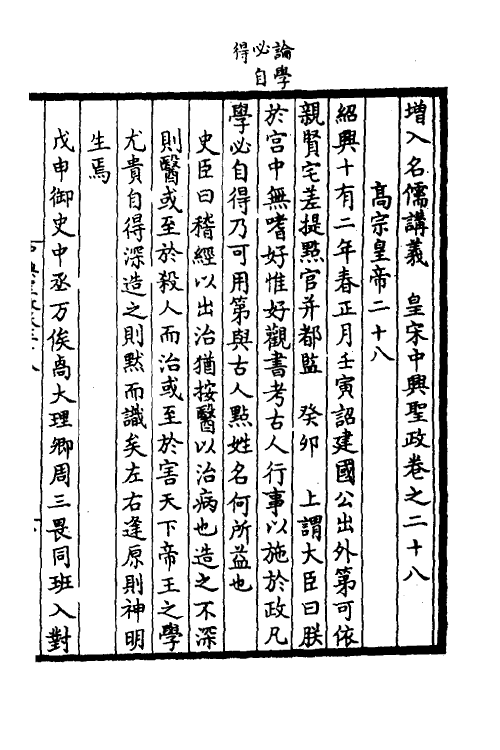 論學
必自
得
增入名儒講義　皇宋中興聖政卷之二十八
髙宗皇帝二十八
紹興十有二年春正月壬寅詔建國公出外第可依
親賢宅差提㸃官并都監　癸卯　上謂大臣曰朕
於宫中無嗜好惟好觀書考古人行事以施於政凡
學必自得乃可用第與古人㸃姓名何所益也
史臣曰稽經以出治猶按醫以治病也造之不深
則醫或至於殺人而治或至於害天下帝王之學
尤貴自得深造之則黙而識矣左右逢原則神明
生焉
戊申御史中丞万俟卨大理卿周三畏同班入對